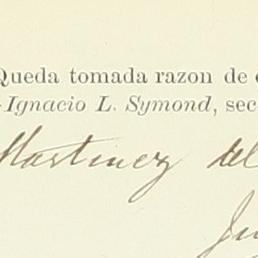 Queda tomada razon de
Ignacio L. Symond, sec
Martinez del